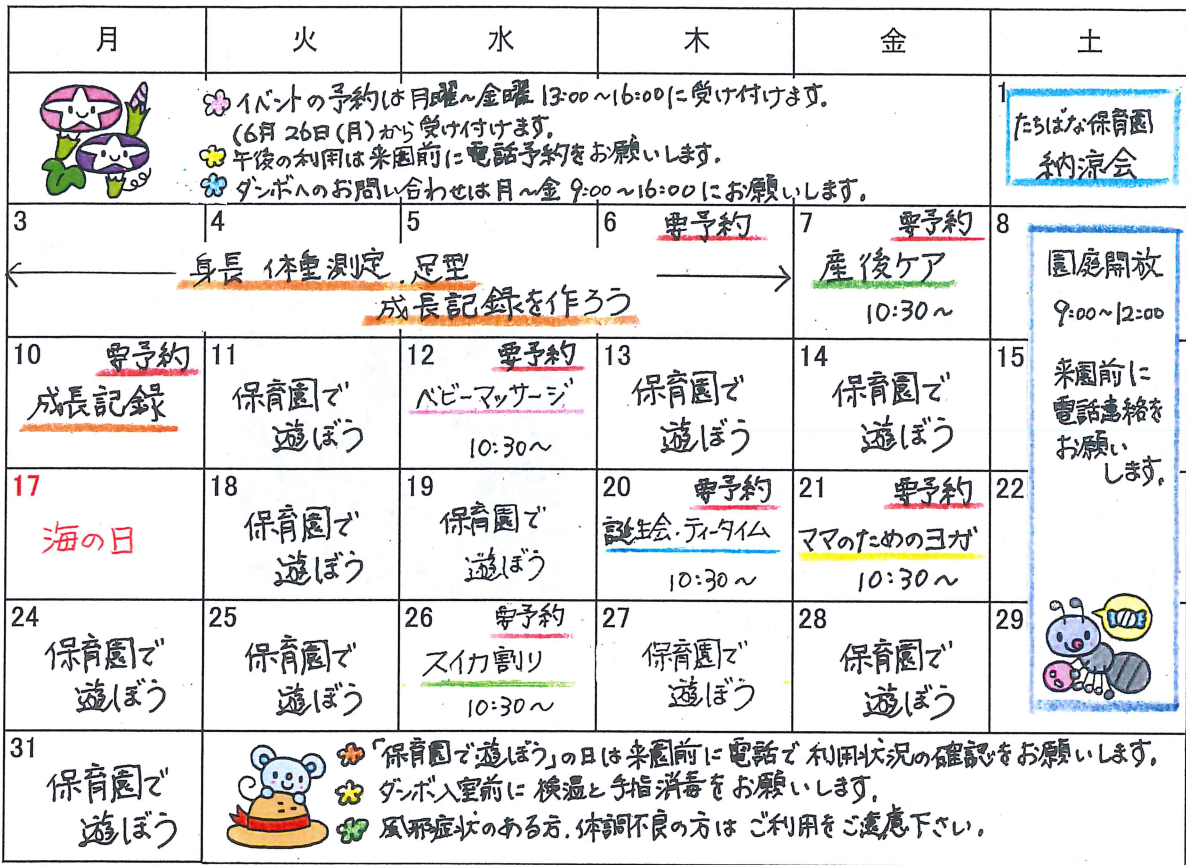 月 火 水 木 金 土
イベントの予約は月曜~金曜 13:00~16:00に受け付けます。
(6月26日(月)から受け付けます。
午後の利用は来園前に電話予約をお願いします。
ダンボへのお問い合わせは月~金 9:00~16:00にお願いします。
1
たちばな保育園
納涼会
3 4 5 6 要予約
身長 体重測定.足型
成長記録を作ろう
7 要予約
産後ケア
10:30~
8
園庭開放
9:00~12:00
来園前に
電話連絡を
お願い
します。
10 要予約
成長記録
11
保育園で
遊ぼう
12 要予約
ベビーマッサージ
10:30~
13
保育園で
遊ぼう
14
保育園で
遊ぼう
15
17
海の日
18
保育園で
遊ぼう
19
保育園で
遊ぼう
20 要予約
誕生会・ティータイム
10:30~
21 要予約
ママのためのヨガ
10:30~
22
24
保育園で
遊ぼう
25
保育園で
遊ぼう
26 要予約
スイカ割り
10:30~
27
保育園で
遊ぼう
28
保育園で
遊ぼう
29
31
保育園で
遊ぼう
「保育園で遊ぼう」の日は来園前に電話で利用状況の確認をお願いします。
ダンボ入室前に検温と手指消毒をお願いします。
風邪症状のある方.体調不良の方はご利用をご遠慮下さい。